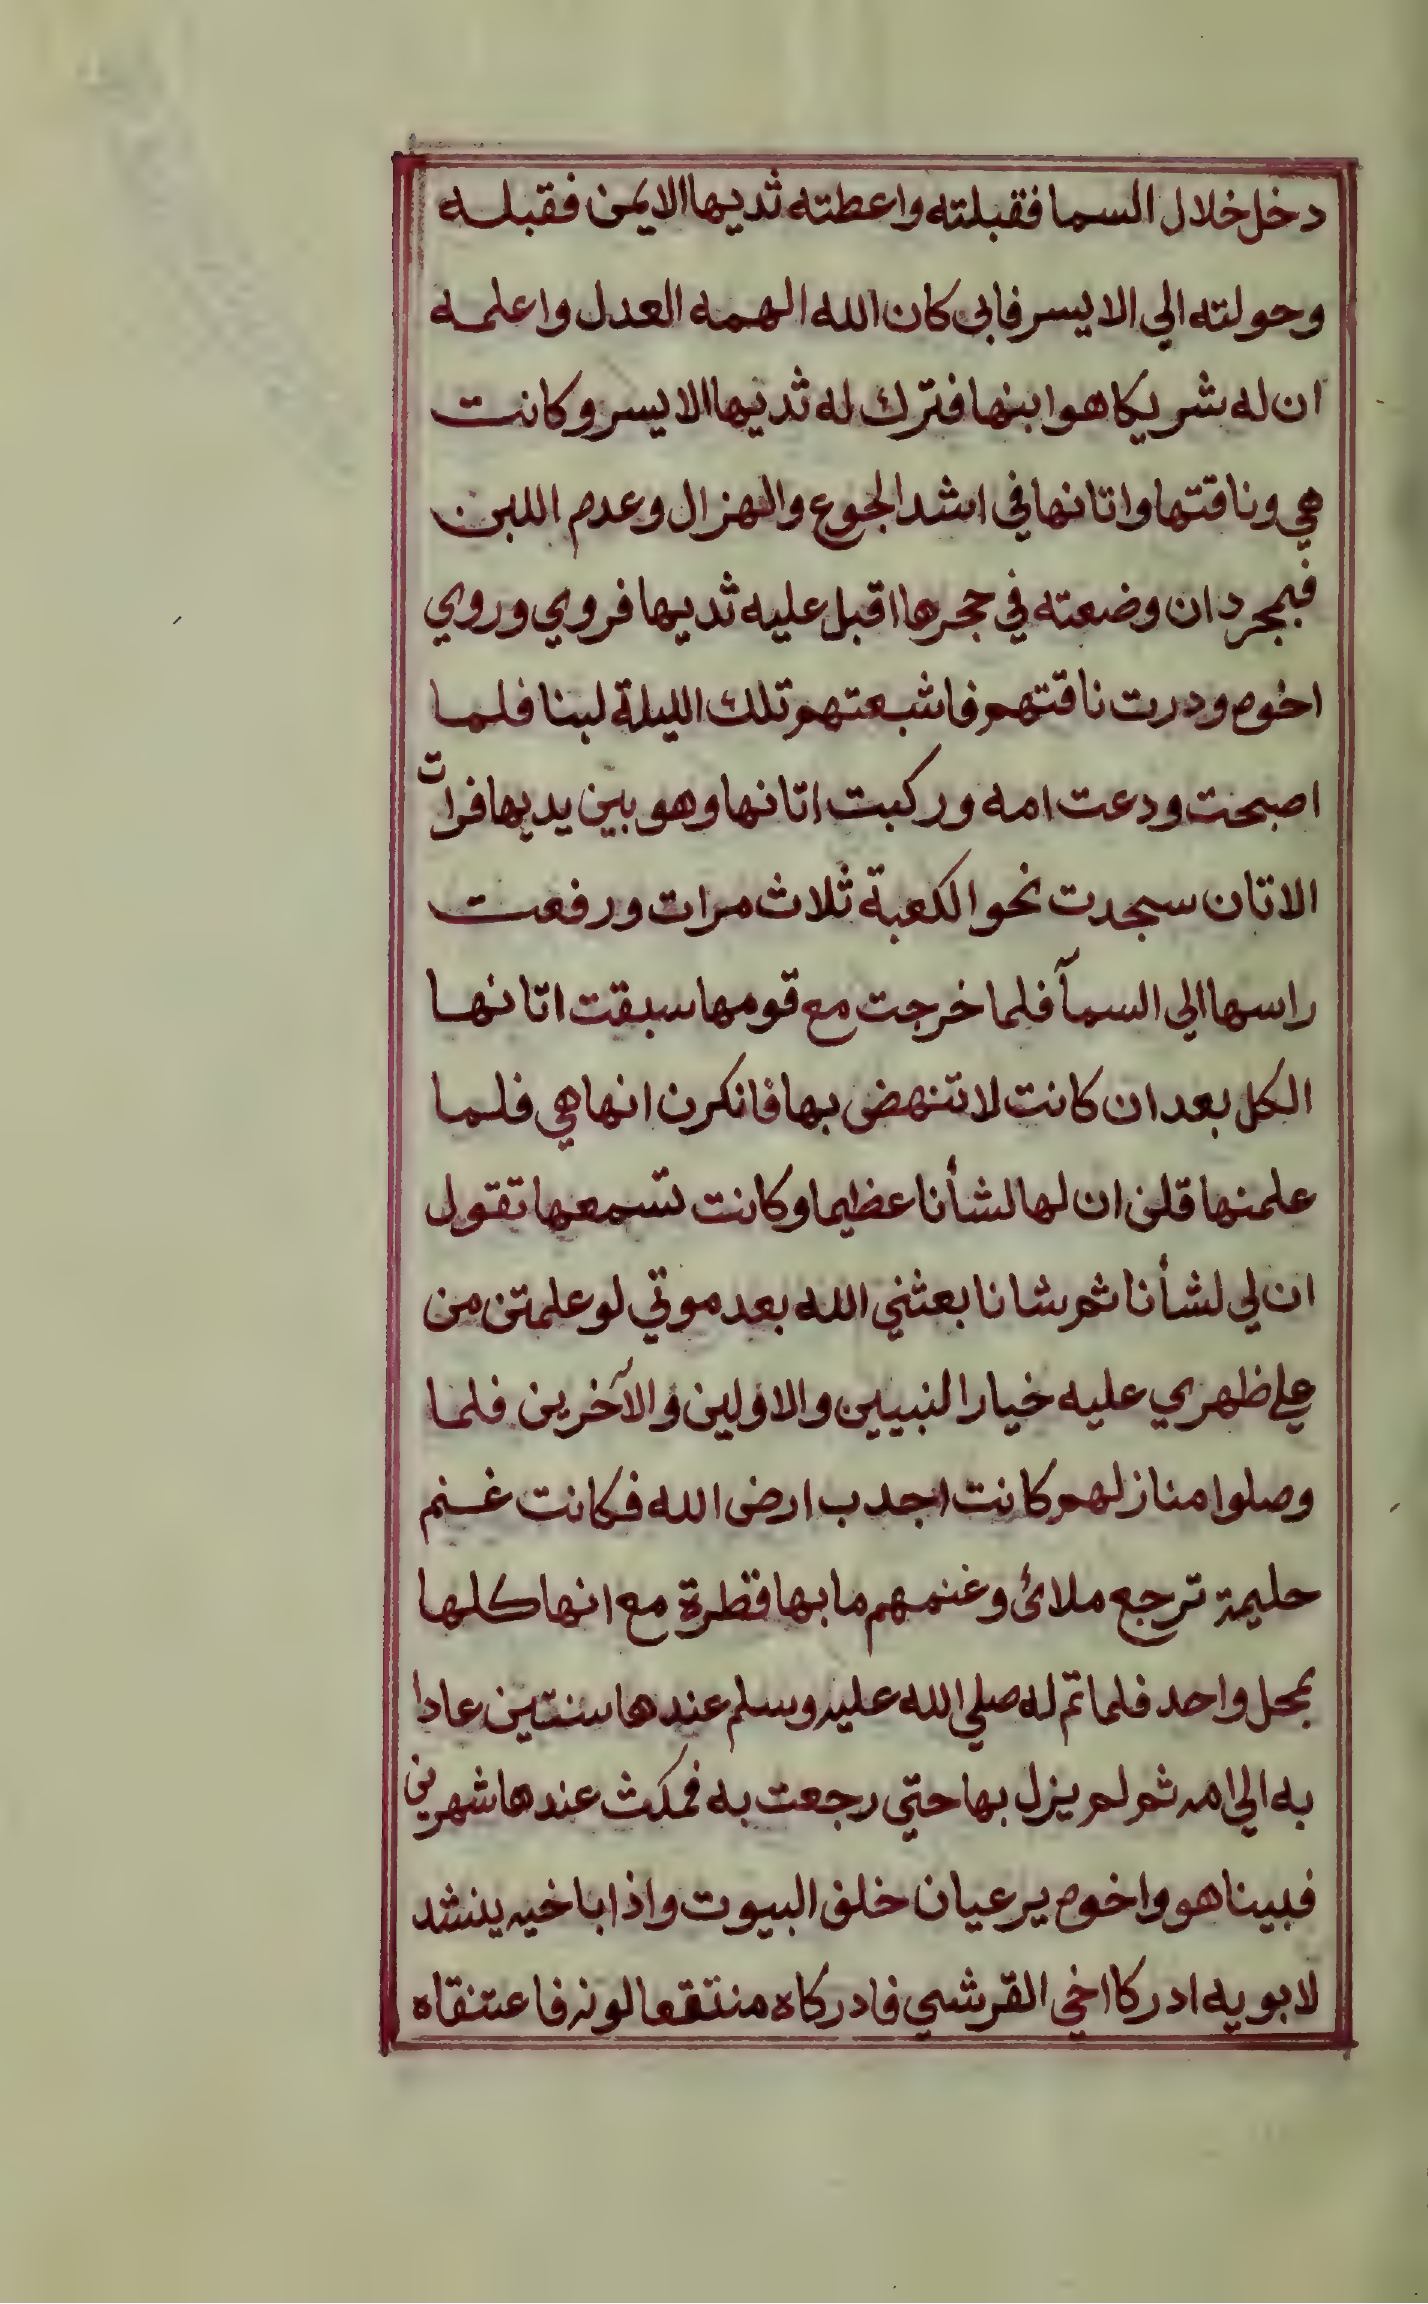 دخل خلال السما فقبلته واعطته ثديها الايمن فقبله
وحولته الي الايسر فابي كان الله الهمه العدل واعلمه
ان له شريكا هو ابنها فترك له ثديها الايسر وكانت
هي وناقتها واتانها في اشد الجوع والهزال وعدم اللبن
فبمجرد ان وضعته في حجرها اقبل عليه ثديها فروي وروي
اخوه ودرت ناقتهم فاشبعتهم تلك الليلة لبنا فلما
اصبحت ودعت امه وركبت اتانها وهو بين يديها فرات
الاتان سجدت نحو الكعبة ثلاث مرات ورفعت
راسها الي السمآ فلما خرجت مع قومها سبقت اتانها
الكل بعد ان كانت لا تنهض بها فانكرن انها هي فلما
علمنها قلن ان لها لشأنا عظيما وكانت تسمعها تقول
ان لي لشأنا ثم شانا بعثني الله بعد موتي لو علمتن من
علي ظهري عليه خيار النبيين والاولين والآخرين فلما
وصلوا منازلهم كانت اجدب ارض الله فكانت غنم
حليمة ترجع ملائ وغنمهم ما بها قطرة مع انها كلها
بمحل واحد فلما تم له صلي الله عليه وسلم عندها سنتين عادا
به الي امه ثم لم يزل بها حتي رجعت به فمكث عندها شهرين
فبينا هو واخوه يرعيان خلف البيوت واذا باخيه ينشد
لابويه ادركا اخي القرشي فادركاه منتقعا لونه فاعتنقاه